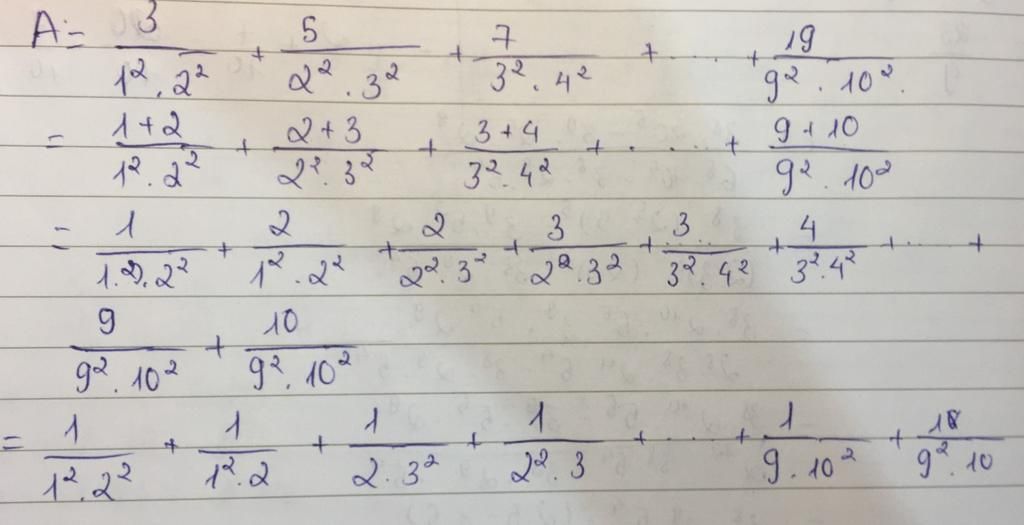 A = 3/(1² . 2²) + 5/(2² . 3²) + 7/(3² . 4²) + .... + 19/(9² . 10²).
= (1+2)/(1² . 2²) + (2+3)/(2² . 3²) + (3+4)/(3² . 4²) + ..... + (9+10)/(9² . 10²)
= 1/(1² . 2²) + 2/(1² . 2²) + 2/(2² . 3²) + 3/(2² . 3²) + 3/(3² . 4²) + 4/(3² . 4²) + .... +
9/(9² . 10²) + 10/(9² . 10²)
= 1/(1² . 2²) + 1/(1² . 2) + 1/(2 . 3²) + 1/(2² . 3) + .... + 1/(9 . 10²) + 1/(9² . 10)